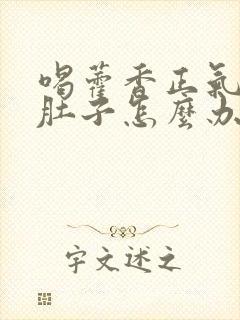 喝藿香正氣
肚子怎麼办
字文述之